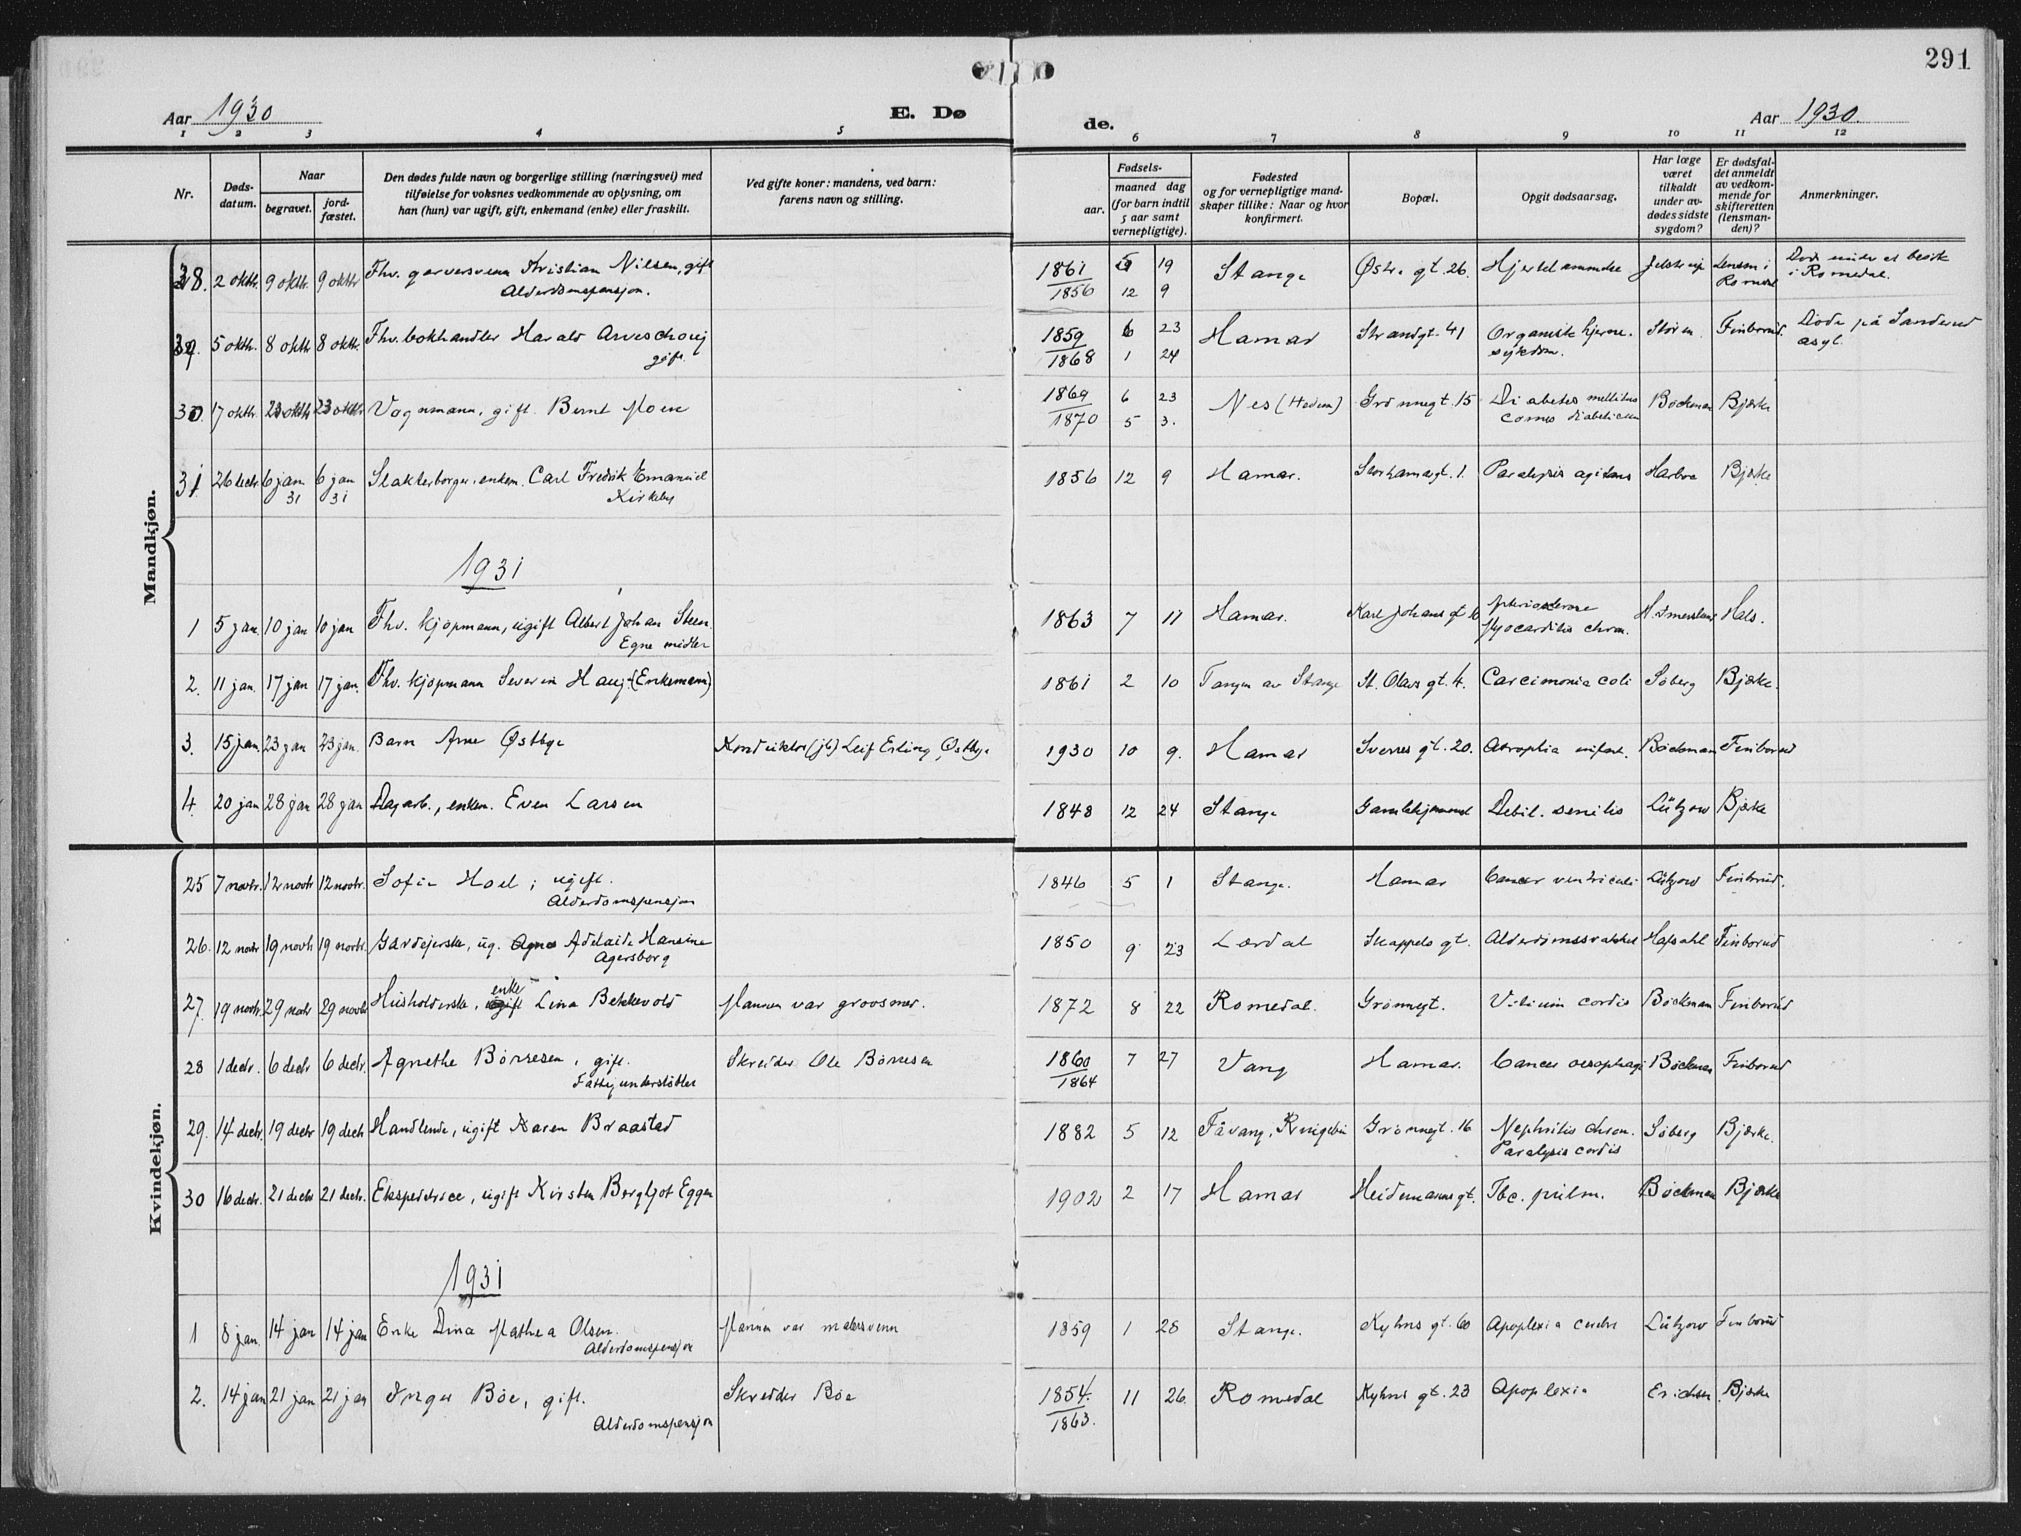 291
Aar 1930
E. Dø
de.
Aar 1930.
1 2 3 4 5 6 7 8 9 10 11 12
Nr.
Døds-
datum.
Naar
begravet.
jord-
fæstet.
Den dødes fulde navn og borgerlige stilling (næringsvei) med
tilføielse for voksnes vedkommende av oplysning, om
han (hun) var ugift, gift, enkemand (enke) eller fraskilt.
Ved gifte koner: mandens, ved barn:
farens navn og stilling.
Fødsels-
aar.
maaned dag
(for barn indtil
5 aar samt
vernepligtige).
Fødested
og for vernepligtige mand-
skaper tillike: Naar og hvor
konfirmert.
Bopæl.
Opgit dødsaarsag.
Har læge
været
tilkaldt
under av-
dødes sidste
sygdom?
Er dødsfal-
det anmeldt
av vedkom-
mende for
skifteretten
(lensman-
den)?
Anmerkninger.
Mandkjøn.
28. 2 oktbr. 9 oktbr 9 oktbr Fhv. garversvenn Kristian Nilsen, gift 1861 19 Stange Østre gt. 26. Jelstrup Lensm i Døde under et besøk
Alderdomspensjon. 1856 12 9 Romedal i Romedal.
29. 5 oktbr. 8 oktbr 8 oktbr. Fhv. bokhandler Harald Arveschoug 1859 6 23 Hamar Strandgt. 41 Organisk hjerne- Støren Finborud. Døde på Sanderud
gift. 1868 1 24 sykdom. asyl.
30. 17 oktbr. 23 oktbr 23 oktbr. Vognmann, gift. Bernt Moen 1869 6 23 Nes (Hedem) Grønnegt. 15 Diabetes mellitus Bøckman Bjørke
1870 5 3. coma diabeticum
31. 26 decbr. 6 jan 6 jan Slakterborger, enkem. Carl Fredrik Emanuel 1856 12 9 Hamar. Storhamargt. 1. Paralysis agitans Harboe Bjørke
31 31 Kirkeby
1931
1 5 jan. 10 jan 10 jan Fhv. kjøpmann, ugift Albert Johan Steen. 1863 7 11 Hamar. Karl Johans gt 16 Hals.
Egne midler Myocarditis chron.
2. 11 jan. 17 jan 17 jan. Fhv. kjøpmann Severin Haug (Enkemann) 1861 2 10 Tangen av Stange St. Olavs gt. 4. Carcimonia coli Søberg Bjørke.
3. 15 jan. 23 jan 23 jan. Barn Arne Østbye Konduktør (jb) Leif Erling Østbye 1930 10 9. Hamar Sverres gt. 20. Atrophia infant. Bøckman Finborud
4. 20 jan 28 jan 28 jan Dagarb., enkem. Even Larsen 1848 12 24 Stange Gamlehjemmet Debil. senilis Lützow Bjørke
Kvindekjøn.
25 7 novbr. 12 novbr 12 novbr. Sofie Hoel, ugift. 1846 5 1 Stange. Hamar Cancer ventriculi Lützow Finborud.
Alderdomspensjon
26. 12 novbr 19 novbr 19 novbr. Gårdejerske, ug. Agnes Adelaide Hansine 1850 9 23 Lærdal Skappels gt. Alderdomssvakhet Hafsahl Finborud
Agersborg
27. 19 novbr. 29 novbr 29 novbr Husholderske, ugift enke Lina Bekkevold Mannen var grovsmed. 1872 8 22 Romedal. Grønnegt. Vitium cordis Bøckman Finborud
28 1 decbr. 6 decbr 6 decbr. Agnethe Børresen, gift. Skredder Ole Børresen 1860 7 27 Vang Hamar. Cancer oesophagi Bøckman Finborud
Fattigunderstøttet 1864
29. 14 decbr. 19 decbr 19 decbr Handlende, ugift Karen Braastad 1882 5 12 Fåvang, Ringebu Grønnegt. 16 Nephritis chron. Søberg Bjørke.
Paralysis cordis
30 16 decbr. 21 decbr 21 decbr. Ekspeditrice, ugift Kirsten Bergljot Eggen 1902 2 17 Hamar Heidmanns gt. Tbc. pulm. Bøckman Bjørke
1931
1 8 jan. 14 jan 14 jan Enke Dina Mathea Olsen. Mannen var malersvenn 1859 1 28 Stange. Kyhns gt. 60 Apoplexia cerebri Lützow Finborud
Alderdomspensjon
2. 14 jan 21 jan 21 jan Inger Bøe, gift. Skredder Bøe 1854. 11 26. Romedal Kyhns gt. 23 Apoplexia Erichsen Bjørke
Alderdomspensjon 1863.